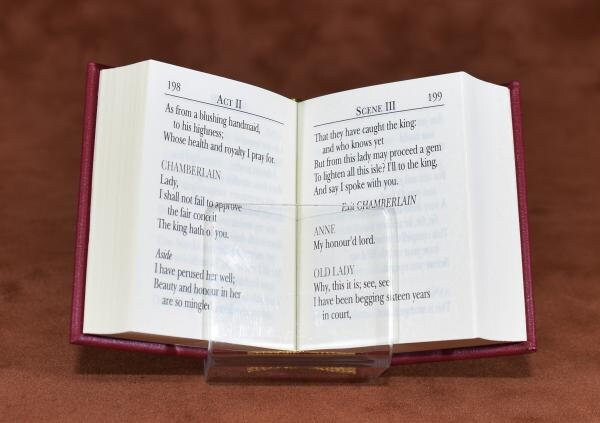 198
ACT II
As from a blushing handmaid,
to his highness;
Whose health and royalty I pray for.
CHAMBERLAIN
Lady,
I shall not fail to approve
the fair conceit
The king hath of you.
Aside
I have perused her well;
Beauty and honour in her
are so mingled
SCENE III
199
That they have caught the king:
and who knows yet
But from this lady may proceed a gem
To lighten all this isle? I'll to the king,
And say I spoke with you.
Exit CHAMBERLAIN
ANNE
My honour'd lord.
OLD LADY
Why, this it is; see, see
I have been begging sixteen years
in court,